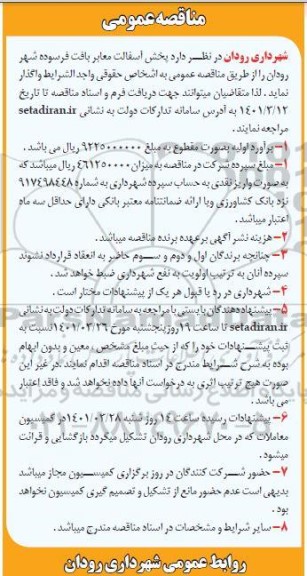 مناقصه عمومی
شهرداری رودان در نظر دارد پخش آسفالت معابر بافت فرسوده شهر
رودان را از طریق مناقصه عمومی به اشخاص حقوقی واجد الشرایط واگذار
نماید . لذا متقاضیان میتوانند جهت دریافت فرم و اسناد مناقصه تا تاریخ
۱۴۰۱/۳/۱۲ به آدرس سامانه تدارکات دولت به نشانی setadiran.ir
مراجعه نمایند .
۱- برآورد اولیه بصورت مقطوع به مبلغ ۹۲۲۵۰۰۰۰۰۰۰ ریال می باشد .
۱- مبلغ سپرده شرکت در مناقصه به میزان ۴۶۱۲۵۰۰۰۰۰ ریال میباشد که
به صورت واریز نقدی به حساب سپرده شهرداری به شماره ۹۱۷۴۹۸۴۴۸
نزد بانک کشاورزی ویا ارائه ضمانتنامه معتبر بانکی دارای حداقل سه ماه
اعتبار میباشد .
۲- هزینه نشر آگهی بر عهده برنده مناقصه میباشد.
۳- چنانچه برندگان اول و دوم و سوم حاضر به انعقاد قرارداد نشوند
سپرده آنان به ترتیب اولویت به نفع شهرداری ضبط خواهد شد .
۴- شهرداری در رد یا قبول هر یک از پیشنهادات مختار است .
۵- پیشنهاددهندگان بایستی با مراجعه به سامانه تدارکات دولت به نشانی
setadiran.ir تا ساعت ۱۹ روز پنجشنبه مورخ ۱۴۰۱/۰۳/۲۶ نسبت به
ثبت پیشنهادات خود را که از حیث مبلغ مشخص ، معین و بدون ابهام
بوده به شرح شرایط مندرج در اسناد مناقصه اقدام نمایند .در غیر این
صورت هیچ ترتیب اثری به درخواست آنها داده نخواهد شد و فاقد اعتبار
می باشد .
۶- پیشنهادات رسیده ساعت ۱۴ روز شنبه ۱۴۰۱/۰۳/۲۸ در کمیسیون
معاملات که در محل شهرداری رودان تشکیل میگردد بازگشایی و قرائت
میشود .
۷- حضور شرکت کنندگان در روز برگزاری کمیسیون مجاز میباشد
بدیهی است عدم حضور مانع از تشکیل و تصمیم گیری کمیسیون نخواهد
بود .
۸- سایر شرایط و مشخصات در اسناد مناقصه مندرج میباشد .
روابط عمومی شهرداری رودان